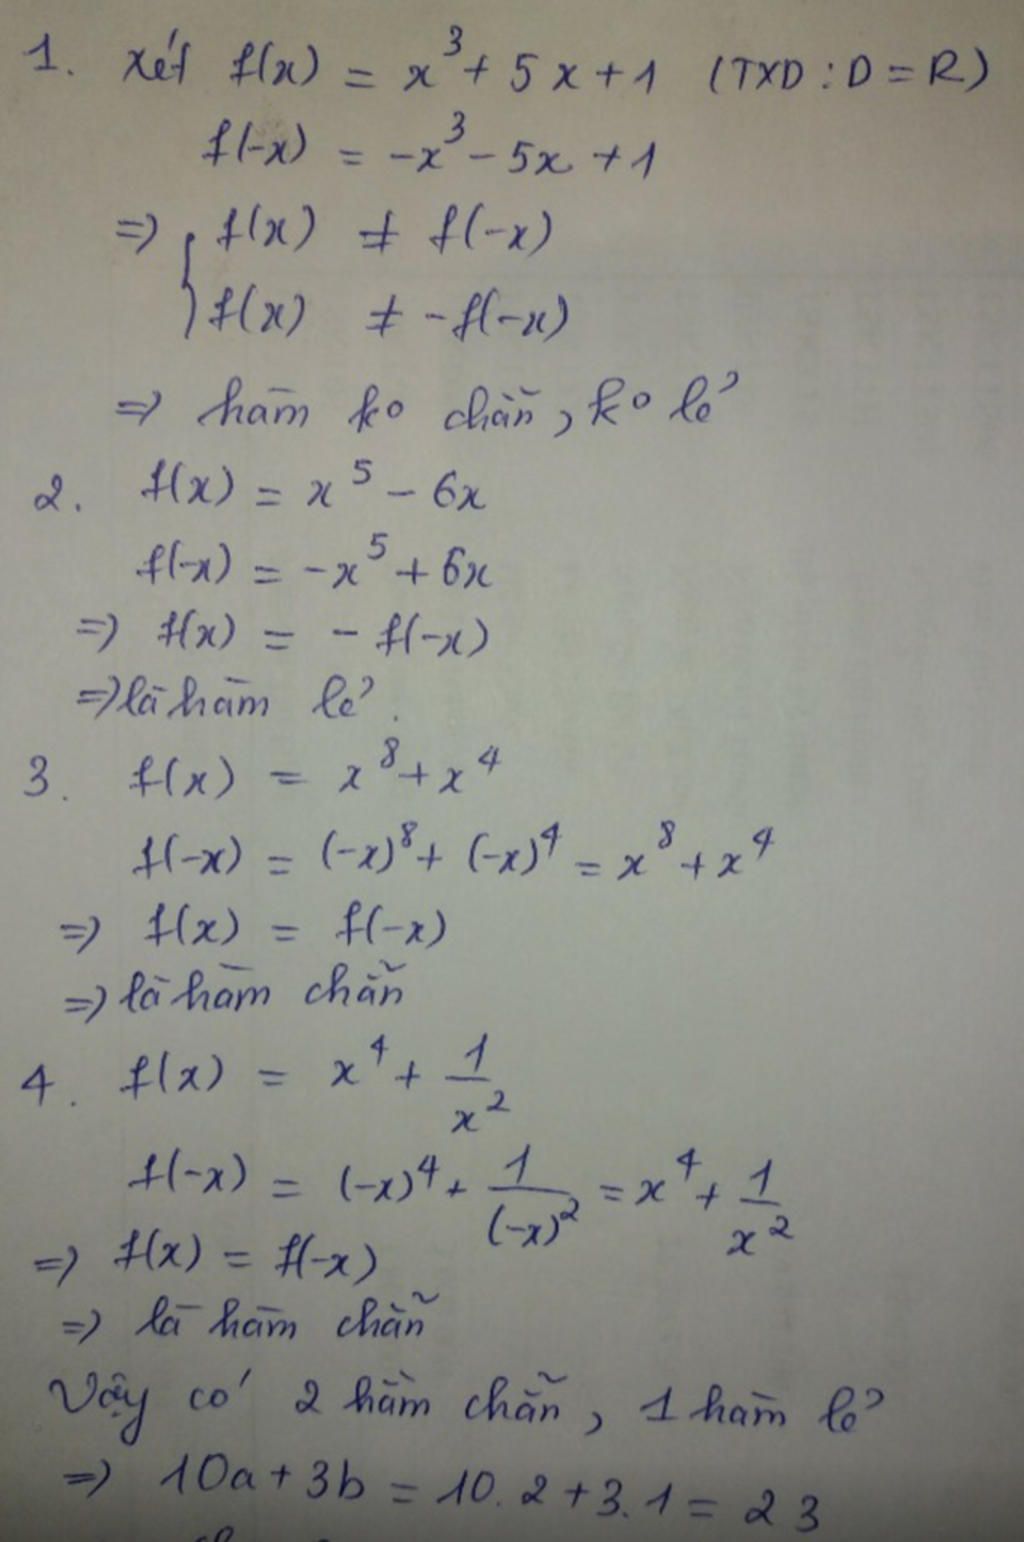 1. Xét f(x) = x³ + 5x + 1 (TXD : D = R)
f(-x) = -x³ - 5x + 1
=> { f(x) ≠ f(-x)
f(x) ≠ -f(-x)
=> hàm ko chẵn, ko lẻ
2. f(x) = x⁵ - 6x
f(-x) = -x⁵ + 6x
=> f(x) = - f(-x)
=> là hàm lẻ.
3. f(x) = x⁸ + x⁴
f(-x) = (-x)⁸ + (-x)⁴ = x⁸ + x⁴
=> f(x) = f(-x)
=> là hàm chẵn
4. f(x) = x⁴ + 1/x²
f(-x) = (-x)⁴ + 1/(-x)² = x⁴ + 1/x²
=> f(x) = f(-x)
=> là hàm chẵn
Vậy có 2 hàm chẵn, 1 hàm lẻ
=> 10a + 3b = 10.2 + 3.1 = 23